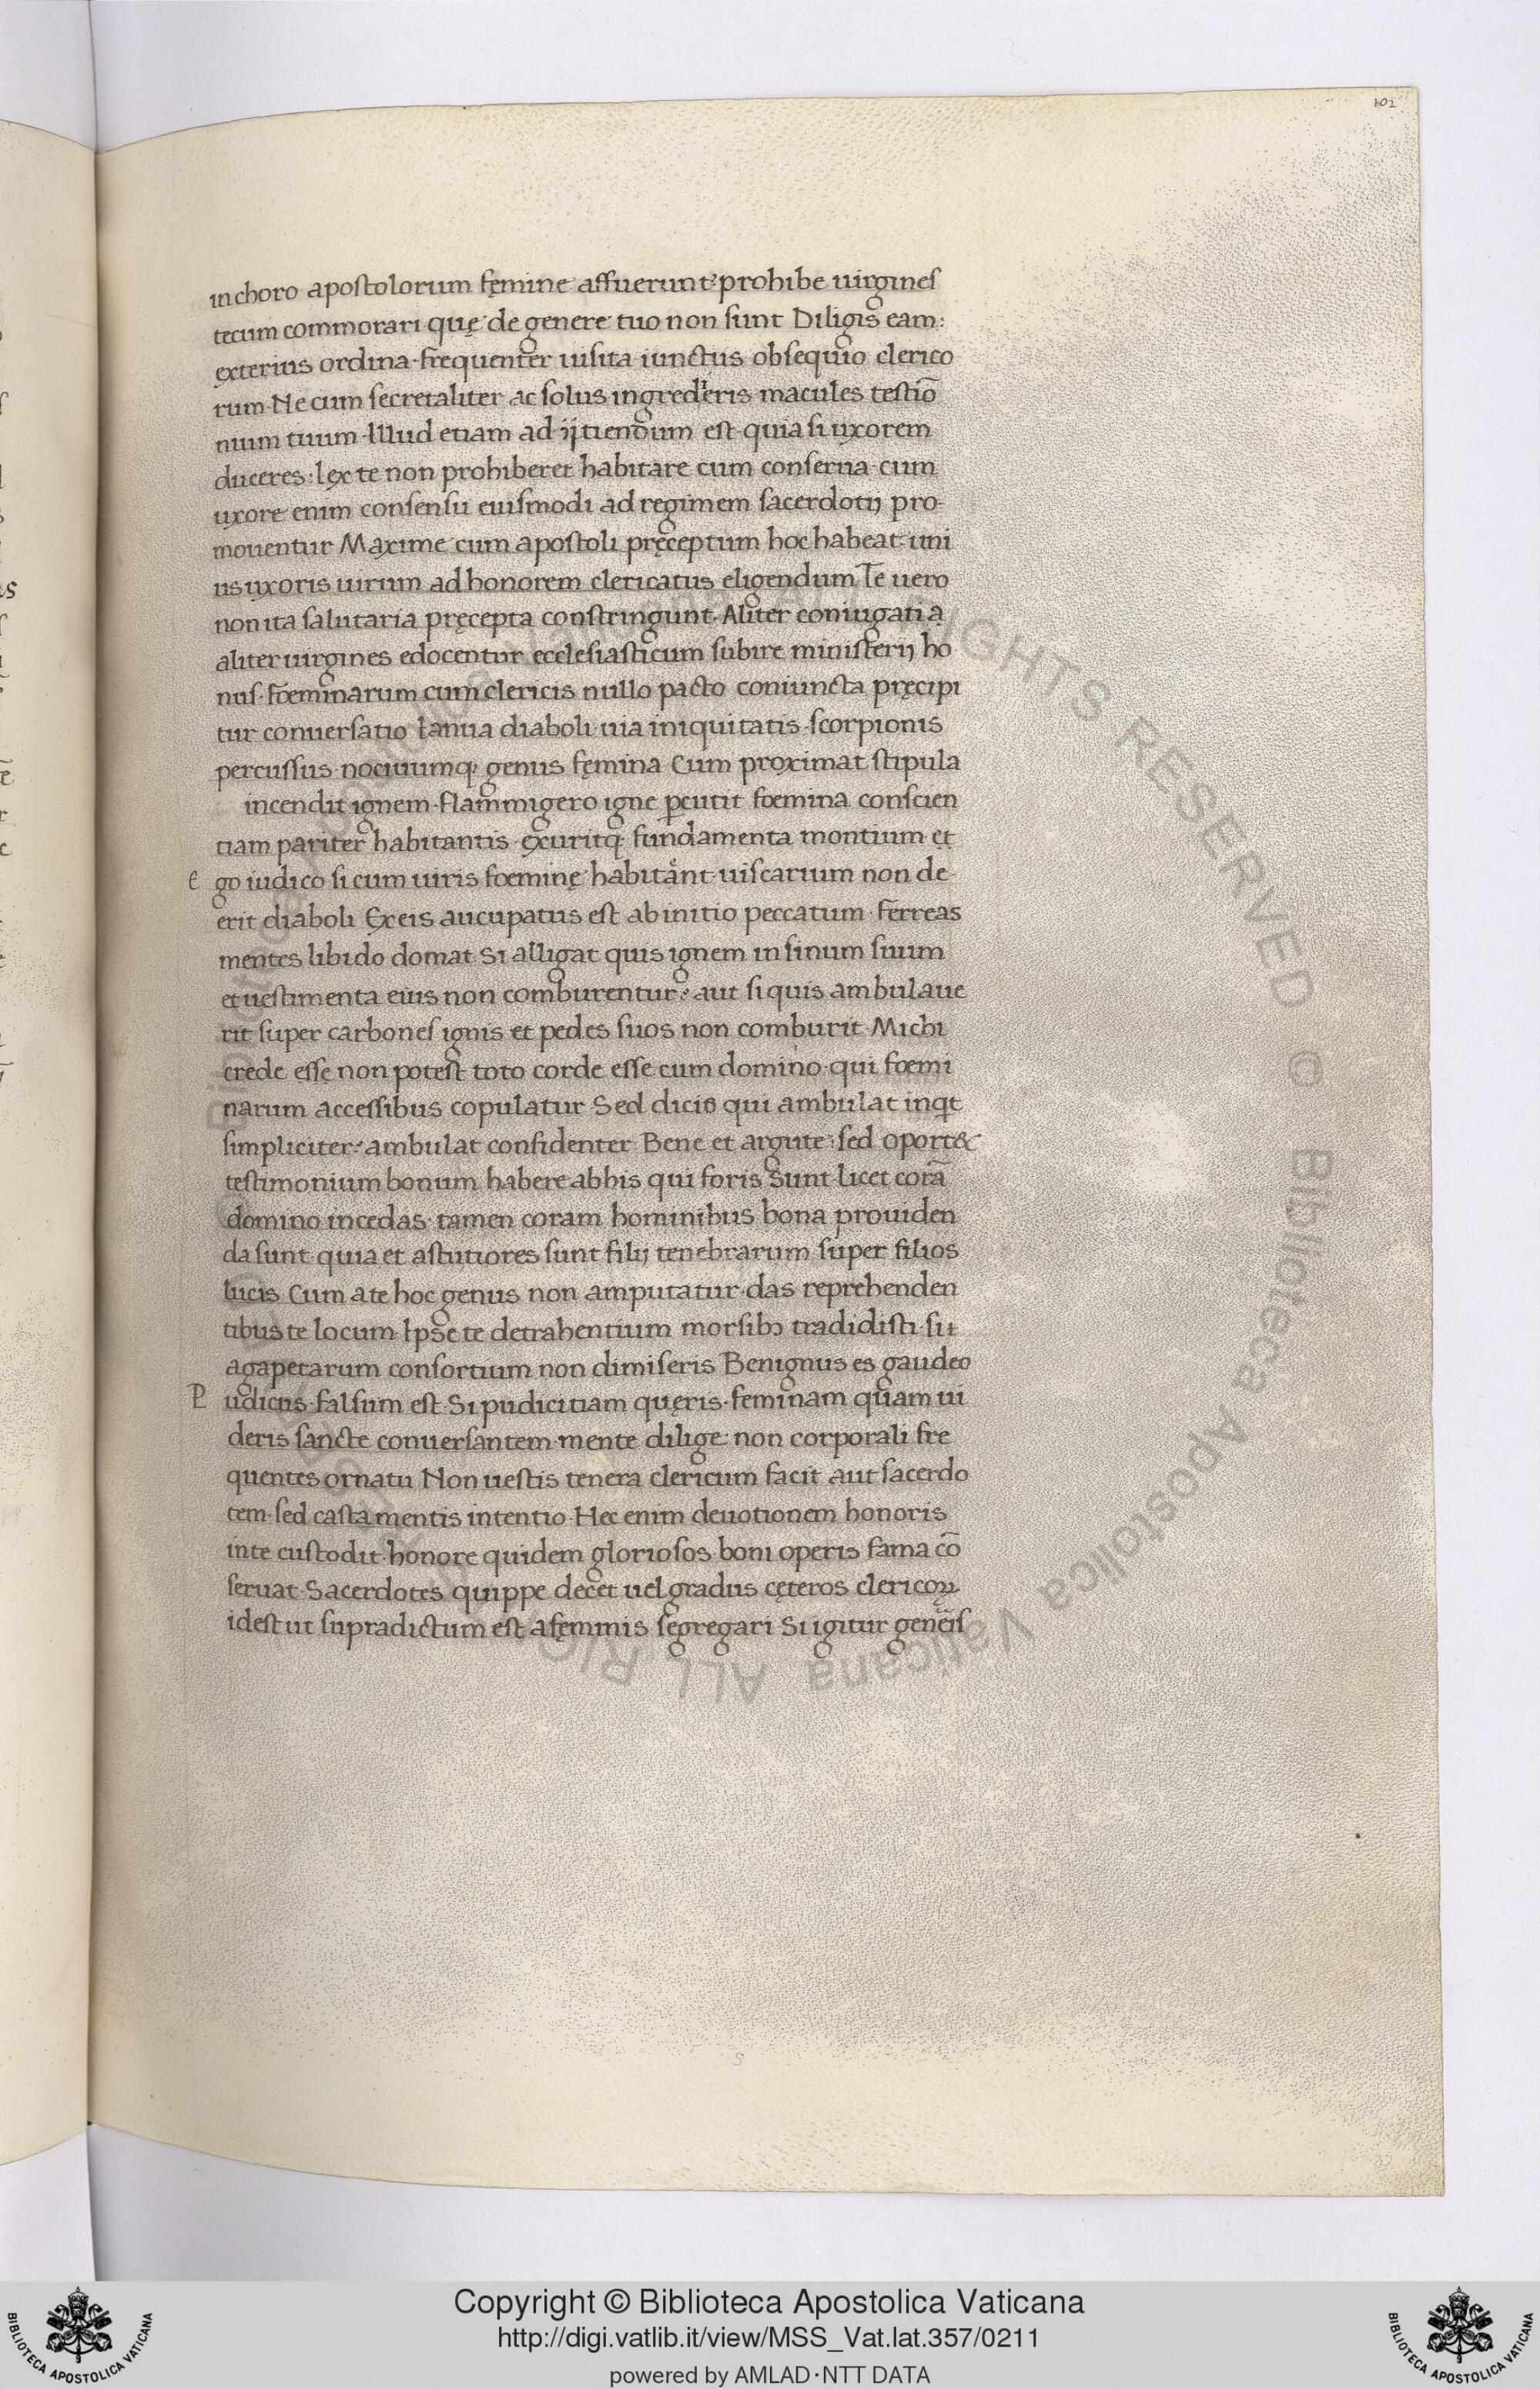 102
in choro apostolorum fęmine affuerunt? prohibe uirgines
tecum commorari quę de genere tuo non sunt Diligis eam:
exterius ordina. frequenter uisita iunctus obsequio clerico
rum. Ne cum secretaliter ac solus ingredieris macules testiō
nium tuum. Illud etiam ad ijtiendum est quia si uxorem
duceres: lex te non prohiberet habitare cum conserua cum
uxore enim consensu eiusmodi ad regimem sacerdotij pro
mouentur Maxime cum apostoli pręceptum hoc habeat uni
us uxoris uirum ad honorem clericatus eligendum Te uero
non ita salutaria pręcepta constringunt. Aliter coniugati ą
aliter uirgines edocentur ecclesiasticum subire ministerij ho
nus. foeminarum cum clericis nullo pacto coniuncta pręcipi
tur conuersatio Ianua diaboli uia iniquitatis scorpionis
percussus nociuumq; genus fęmina Cum proximat stipula
incendit ignem. flammigero igne pcutit foemina conscien
tiam pariter habitantis exuritq; fundamenta montium et
E go iudico si cum uiris foeminę habitant uiscarium non de
erit diaboli Ex eis aucupatus est ab initio peccatum ferreas
mentes libido domat Si alligat quis ignem in sinum suum
et uestimenta eius non comburentur? aut si quis ambulaue
rit super carbones ignis et pedes suos non comburit Michi
crede esse non potest toto corde esse cum domino qui foemi
narum accessibus copulatur Sed dicis qui ambulat inqt
simpliciter: ambulat confidenter Bene et argute: sed oport&
testimonium bonum habere ab his qui foris sunt licet corā
domino incedas tamen coram hominibus bona prouiden
da sunt quia et astutiores sunt filij tenebrarum super filios
lucis Cum a te hoc genus non amputatur das reprehenden
tibus te locum Ipse te detrahentium morsibꝫ tradidisti si
agapetarum consortium non dimiseris Benignus es gaudeo
P udicus falsum est Si pudicitiam quęris feminam quam ui
deris sancte conuersantem mente dilige: non corporali fre
quentes ornatu Non uestis tenera clericum facit aut sacerdo
tem sed casta mentis intentio Hec enim deuotionem honoris
in te custodit honore quidem gloriosos boni operis fama cō
seruat Sacerdotes quippe decet uel gradus cęteros clericoꝝ
id est ut supradictum est a fęminis segregari Si igitur
Copyright © Biblioteca Apostolica Vaticana
http://digi.vatlib.it/view/MSS_Vat.lat.357/0211
powered by AMLAD·NTT DATA
BIBLIOTECA APOSTOLICA VATICANA
BIBLIOTECA APOSTOLICA VATICANA